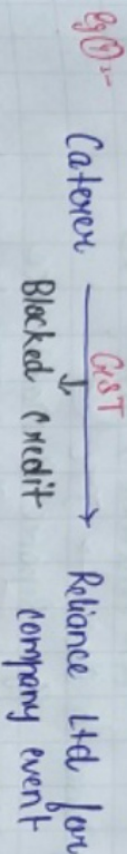 Eg (4) :-
Caterer GST → Reliance Ltd for
↓ company event
Blocked Credit